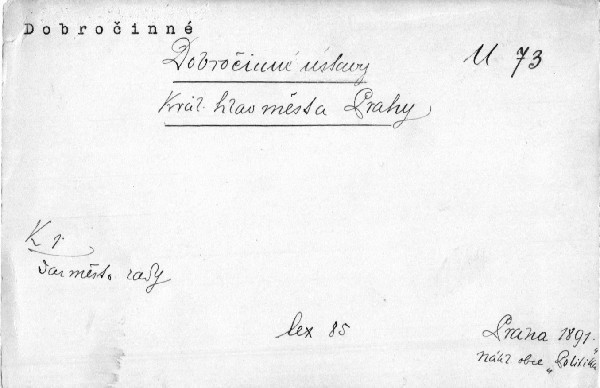 Dobročinné
Dobročinné ústavy
U 73
Král. hlav města Prahy
K
městs. rady
lex 85
Praha 1891.
Nákl obce „Politika"